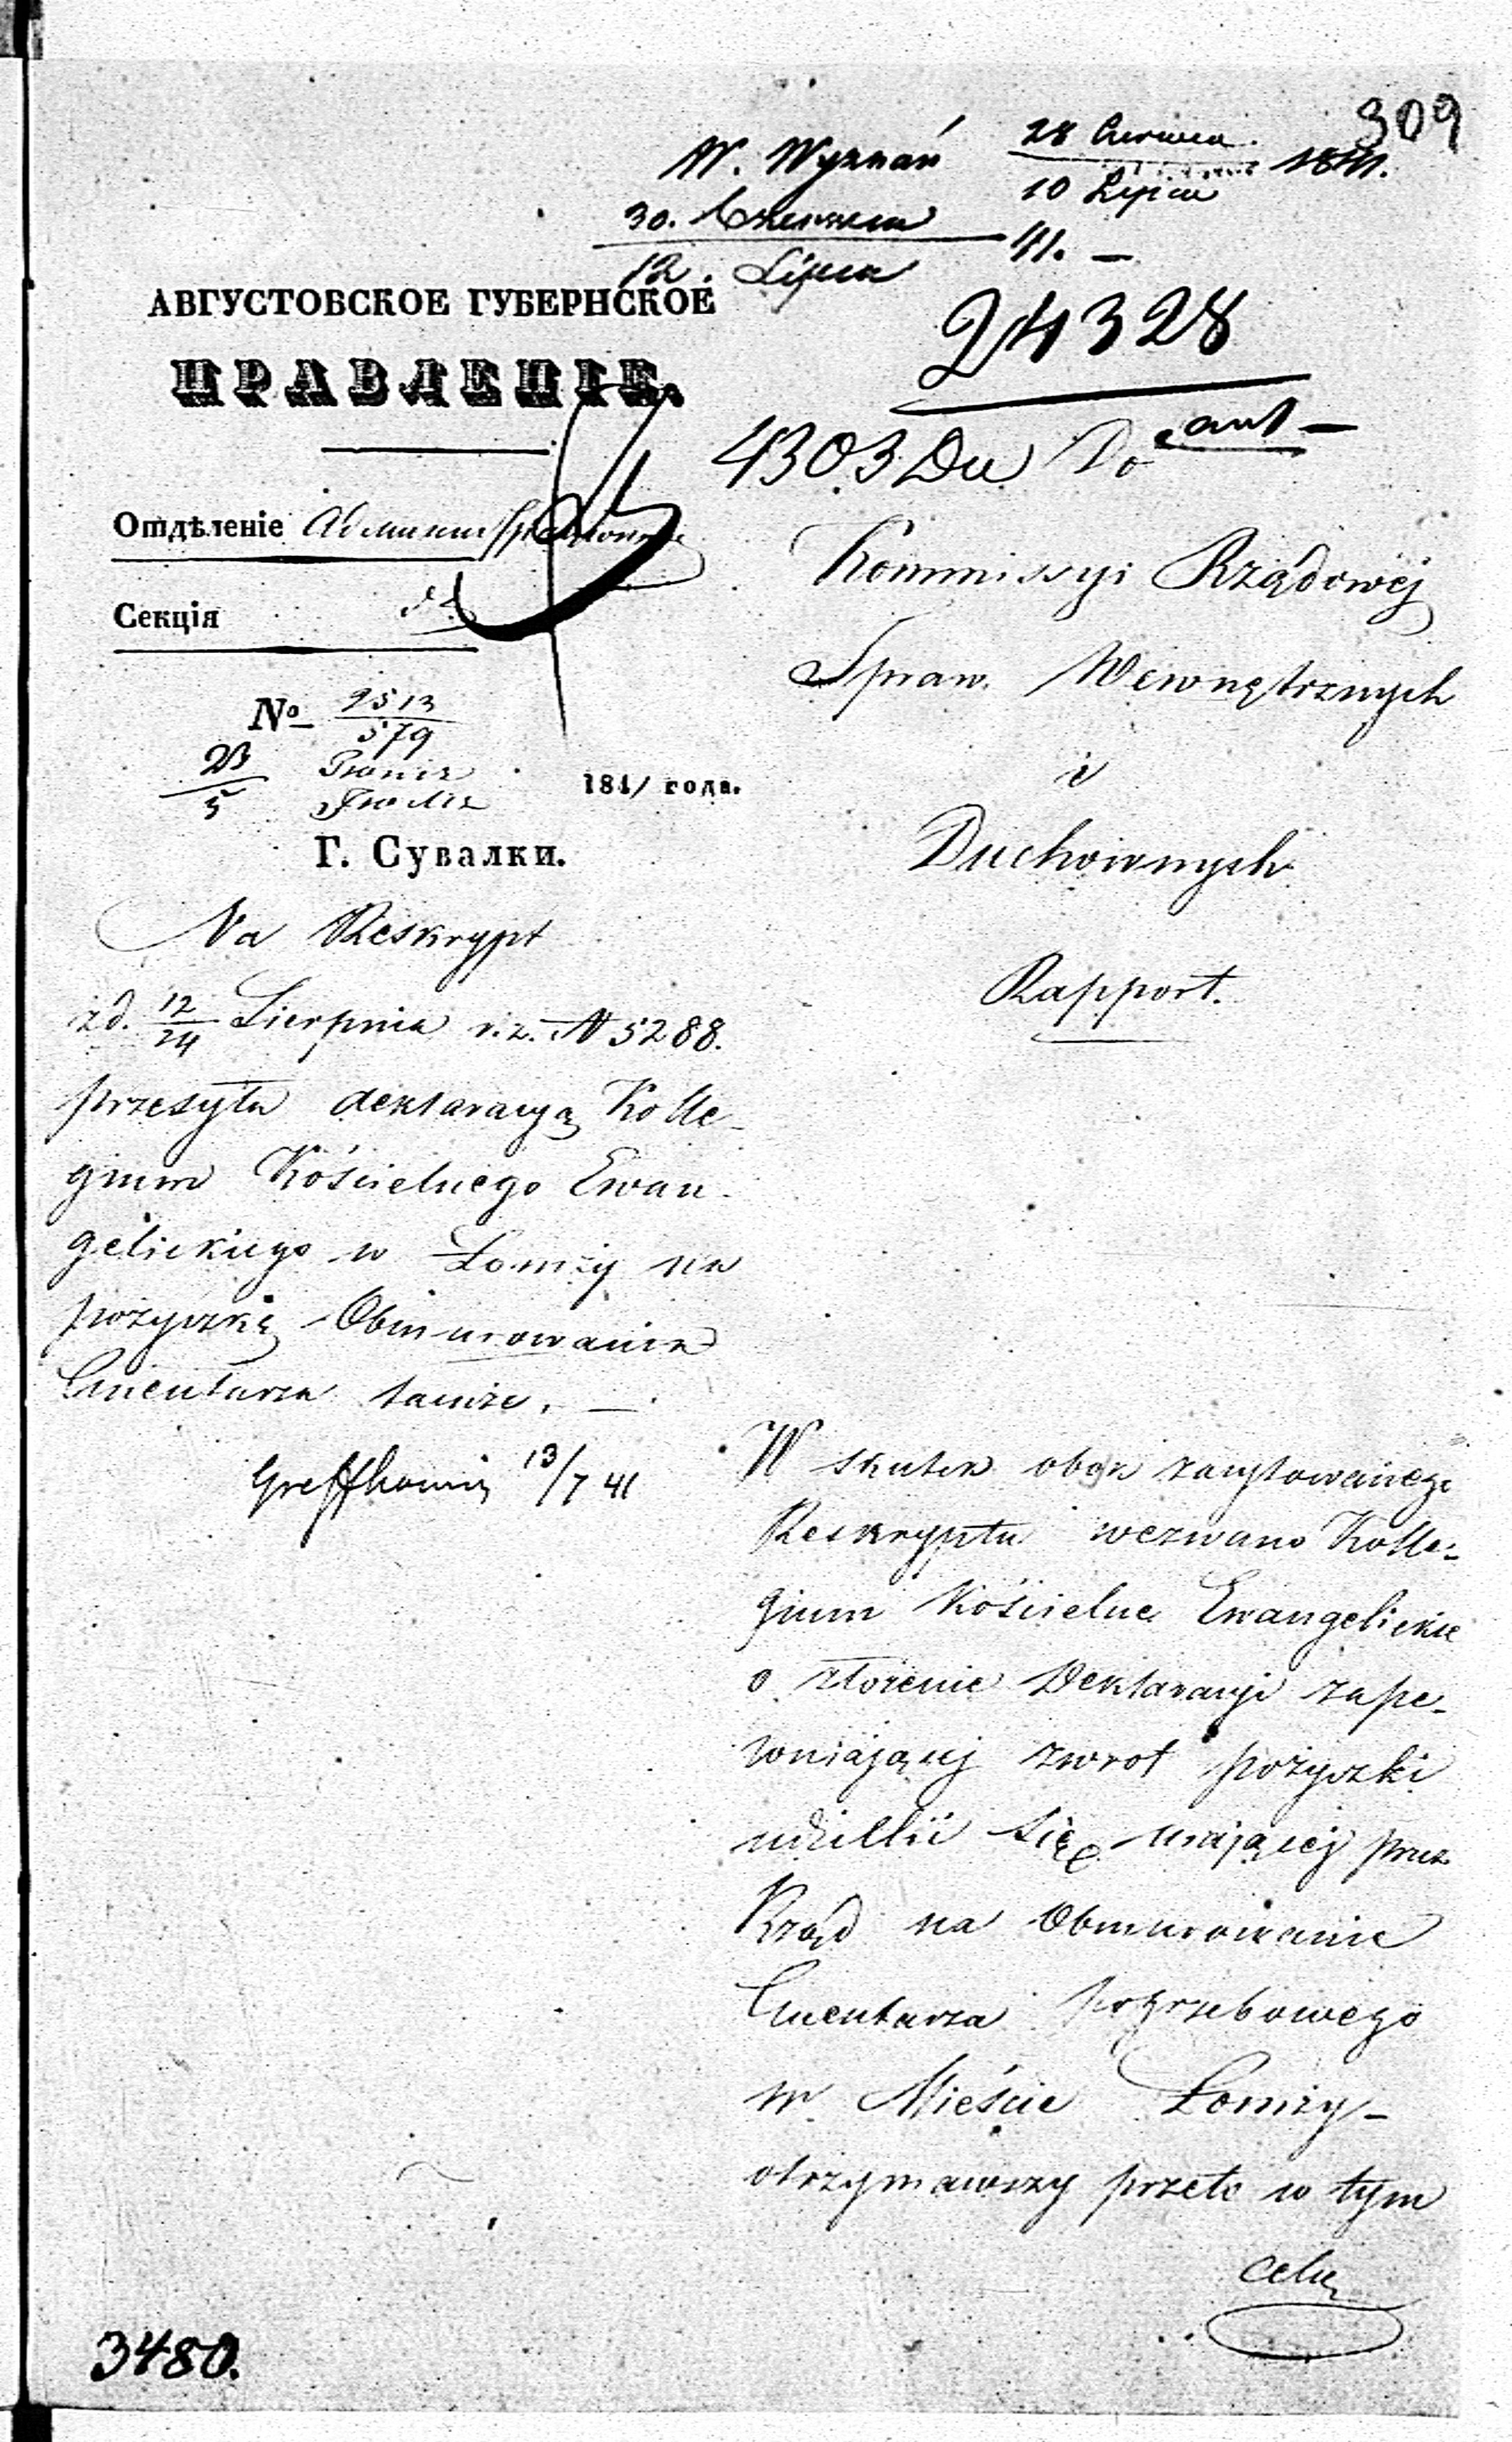 309
W. Wyznań 28 Czerwca
10 Lipca 1841.
30. Czerwca
12. Lipca 41. —
24328
АВГУСТОВСКОЕ ГУБЕРНСКОЕ
ПРАВЛЕНІЕ.
4303 Do
Отдѣленіе
Kommissyi Rządowéj
Секція
Spraw. Wewnętrznych
№ 2513
579
i
23 Іюня
5 Іюля 1841 года.
Г. Сувалки.
Duchownych
Rapport.
Na Reskrypt
z d. 12/24 Sierpnia r. z. N 5288.
przesyła deklaracyą Kolle-
gium Kościelnego Ewan-
gelickiego w Łomży na
pożyczkę Obmurowania
Cmentarza tamże. —
13/7 41
W skutek obok zacytowanego
Reskryptu wezwano Kolle-
gium Kościelne Ewangelickie
o złożenie Deklaracyi zape-
wniającej zwrot pożyczki
udzielić się mającej przez
Rząd na Obmurowanie
Cmentarza pogrzebowego
w Mieście Łomży –
otrzymawszy przeto w tym
celu
3480.